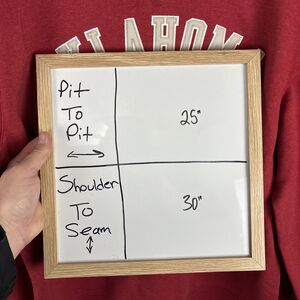 KLAHOM
Pit
To
Pit
25"
Shoulder
To
Seam
30"